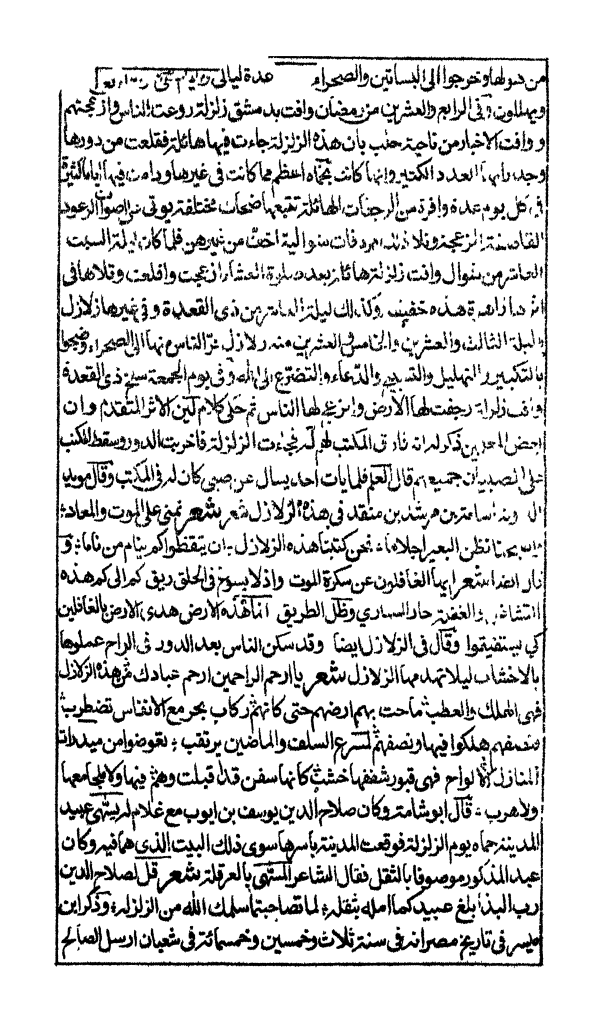 من دورها وخرجوا الى البساتين والصحراء عدة ليالى
ويهللون وفى الرابع والعشرين من رمضان وافت بدمشق زلزلة روعت الناس وازعجتهم
ووافت الاخبار من ناحية حلب بان هذه الزلزلة جاءت فيها هائلة فقلعت من دورها
وجدرانها العدد الكثير وانها كانت بحماه اعظم مما كانت فى غيرها ودامت فيها اياما كثيرة
فى كل يوم عدة وافرة من الرجفات الهائلة تتبعها صيحات مختلفة توفى على اصوات الرعود
القاصفة المزعجة وتلا ذلك رجفات متوالية اخف من غيرهن فلما كان ليلة السبت
العاشر من شوال وافت زلزلة هائلة بعد صلاة العشاء ازعجت واقلعت وتلاها فى
اثرها هزة خفيفة وكذلك ليلة العاشر من ذى القعدة وفى غيرها زلازل
وليلة الثالث والعشرين والخامس والعشرين منه زلازل نفر الناس منها الى الصحراء وضجوا
بالتكبير والتهليل والتسبيح والدعاء والتضرع الى الله وفى يوم الجمعة سلخ ذى القعدة
وافت زلزلة رجفت لها الارض وانزعج لها الناس ثم حكى كلام ابن الاثر المتقدم وان
بعض المعلمين ذكر انه فارق المكتب لمهم فجاءت الزلزلة فاخربت الدور وسقط المكتب
على الصبيان جميعهم قال المعلم فلم يات احد يسال عن صبى كان له فى المكتب وقال مويد
الدولة اسامة بن مرشد بن منقذ فى هذه الزلازل شعر نمنى على الموت والمعاد
نحن كتبنا هذه الزلازل تيقظوا كم ينام من ناما وقال
ايضا شعر ايها الغافلون عن سكرة الموت واذ لا يسوغ فى الحلق ريق كم الى كم هذه
التشاغل والغفلة حار السارى وظل الطريق انما هذه الارض هدى الارض بالغافلين
كى يستفيقوا وقال فى الزلازل ايضا وقد سكن الناس بعد الدور فى الواح عملوها
بالاخشاب ليلا تهدمها الزلازل شعر يا ارحم الراحمين ارحم عبادك من هذه الزلازل
فهى الهلك والعطب ماجت بهم ارضهم حتى كانهم ركاب بحر مع الانفاس تضطرب
فنصفهم هلكوا فيها ونصفهم لمصرع السلف والماضين يرتقب تعوضوا من مشيدات
المنازل بالالواح فهى قبور شقفها خشب كانها سفن قد اقبلت وهم فيها ولا ملجا معها
ولا هرب قال ابو شامة وكان صلاح الدين يوسف بن ايوب مع غلام له يسمى عبيد
المدينة حماه يوم الزلزلة فوقعت المدينة باسرها سوى ذلك البيت الذى هما فيه وكان
عبد المذكور موصوفا بالثقل فقال الشاعر المسمى بالعرقلة شعر قل لصلاح الدين
رب الندا بلغ عبيد كما امله بثقله لما تصاحبتما سلمك الله من الزلزله وذكر ابن
ميسر فى تاريخ مصر انه فى سنة ثلاث وخمسين وخمسمائة فى شعبان ارسل الصالح